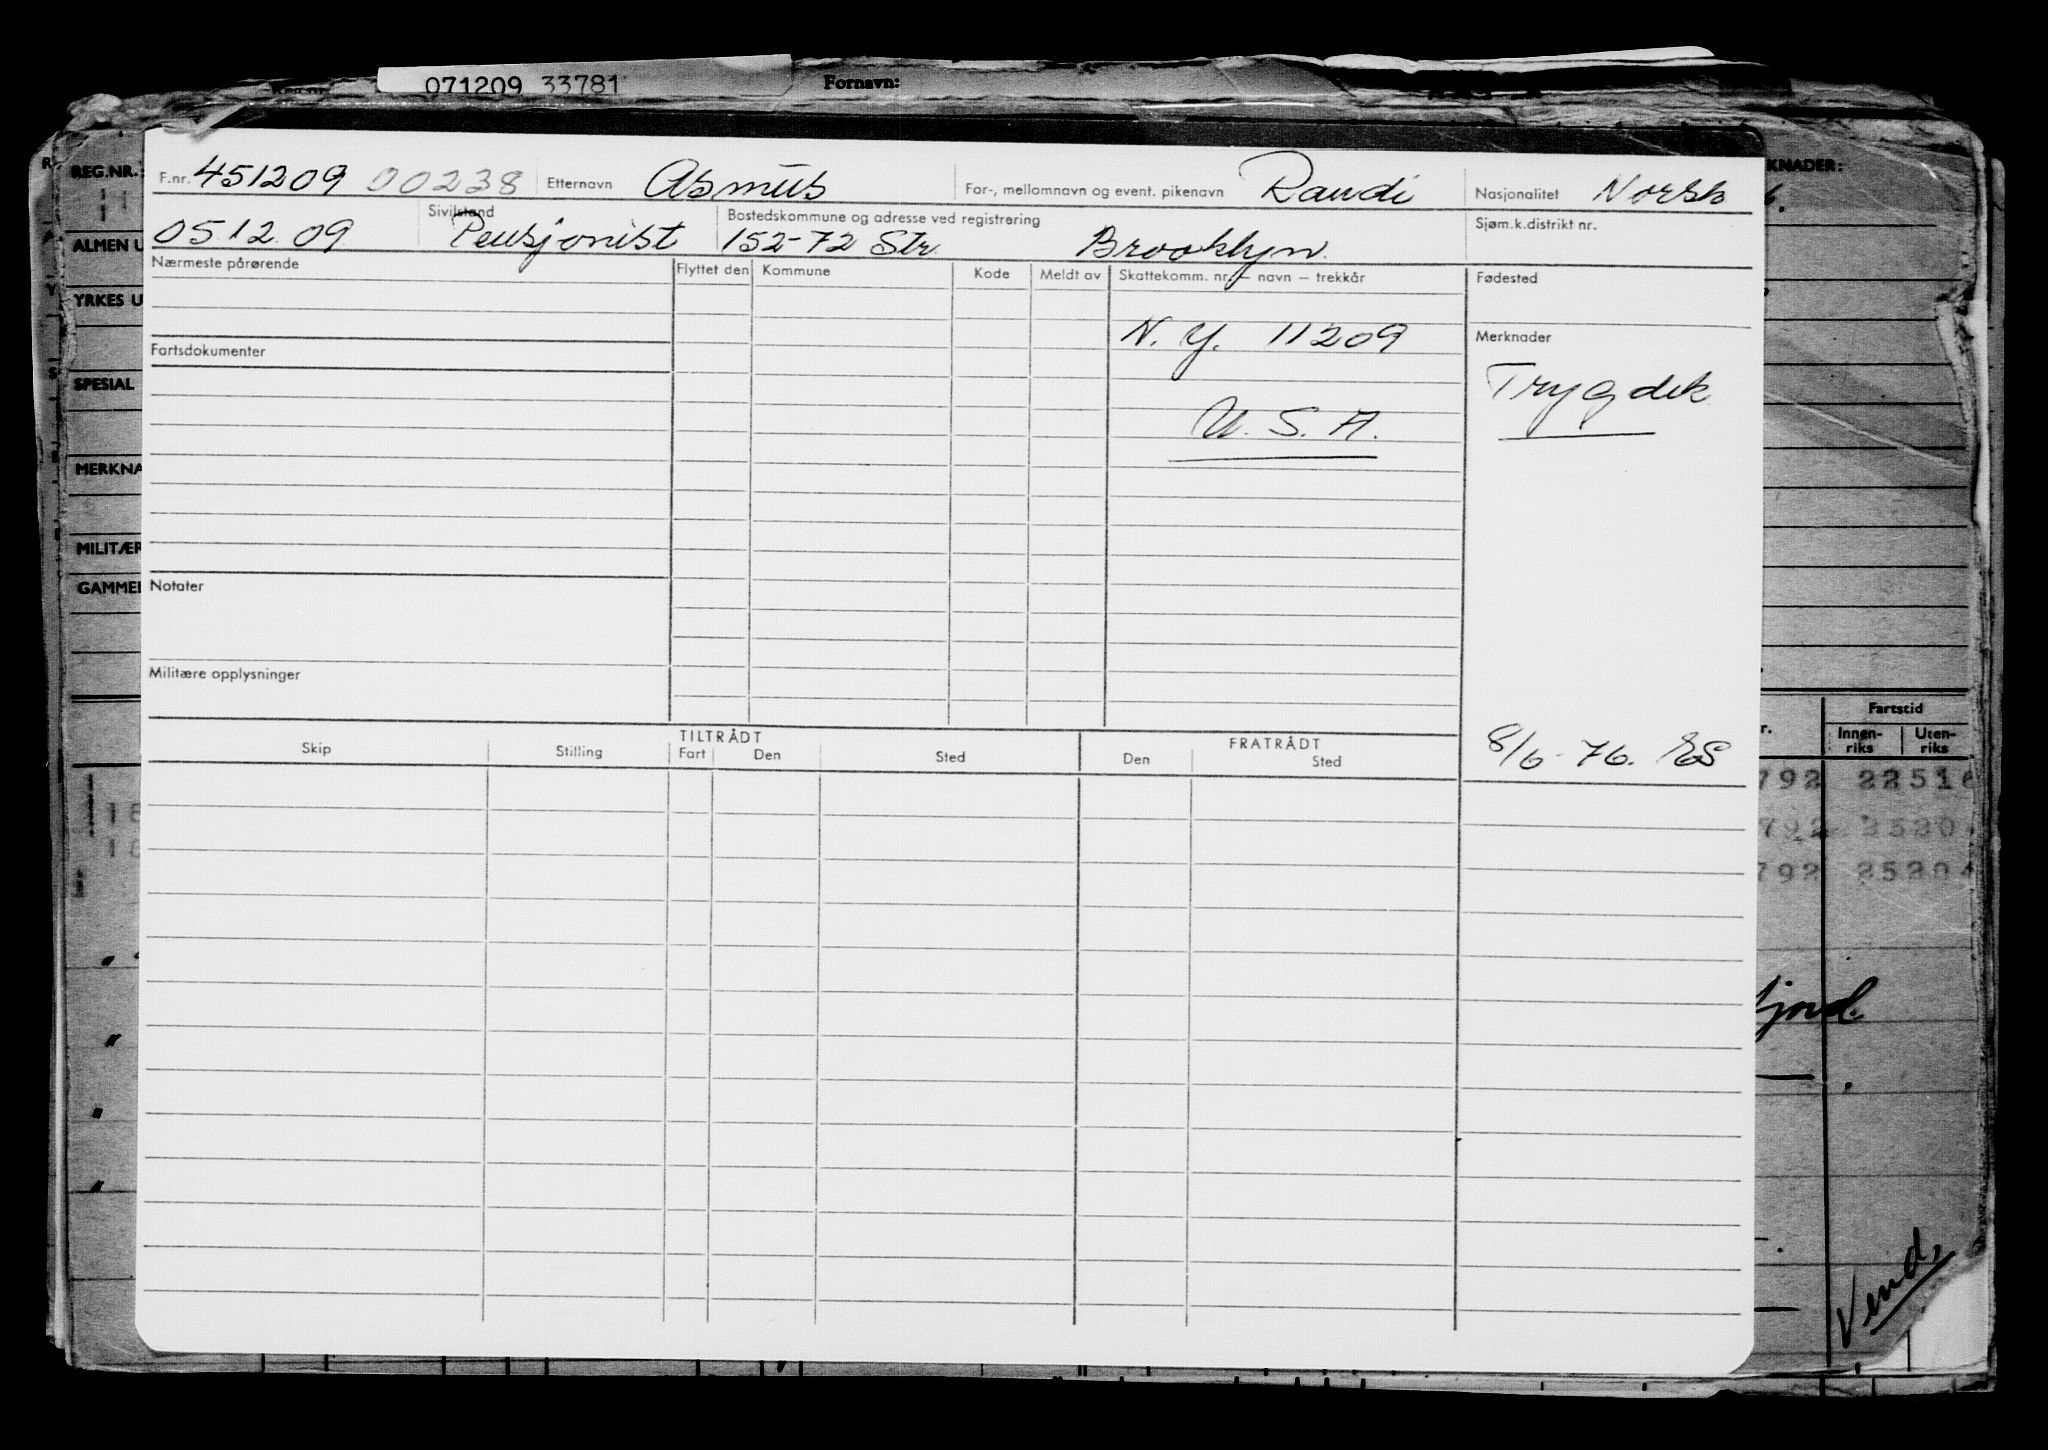 071209 33781 Fornavn:
REG.NR.: KNADER:
F.nr. 451209 00238 Etternavn Asmus For-, mellomnavn og event. pikenavn Randi Nasjonalitet Norsk
Sivilstand Bostedskommune og adresse ved registrering Sjøm.k.distrikt nr.
051209 Pensjonist 152-72 Str. Brooklyn
ALMEN U
Nærmeste pårørende Flyttet den Kommune Kode Meldt av Skattekomm. nr. – navn – trekkår Fødested
YRKES U
N. Y. 11209 Merknader
Fartsdokumenter
SPESIAL
Trygdek
U. S. A.
MERKNA
MILITÆR
GAMMEL
Notater
Militære opplysninger
Fartstid
TILTRÅDT FRATRÅDT
Innen-riks Uten-riks
Skip Stilling Fart Den Sted Den Sted
8/6-76. ES
792 22516
792 25204
792 25204
fjord.
Vend.